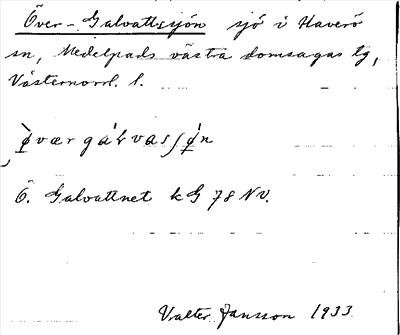 Över-Galvattsjön sjö i Haverö
sn, Medelpads västra domsagas tg,
Västernorrl. l.
ø̀værgálvasʃǿn
Ö. Galvattnet kG 78 NV.
Valter Jansson 1933